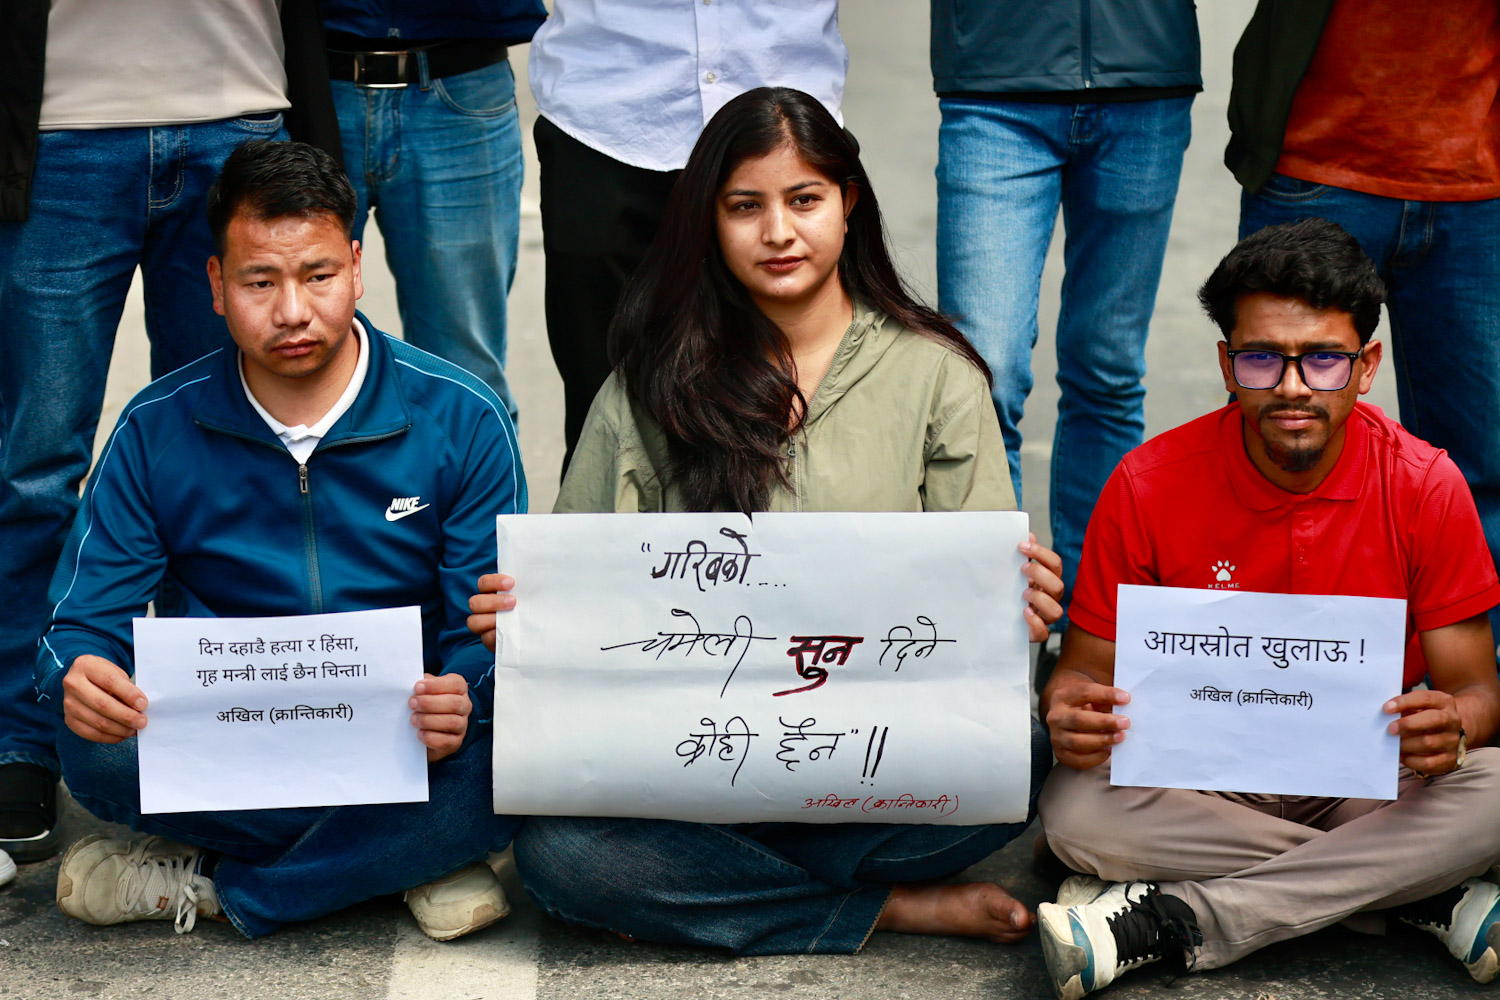 NIKE
दिन दहाडै हत्या र हिंसा,
गृह मन्त्री लाई छैन चिन्ता।
अखिल (क्रान्तिकारी)
"गरिबको....
चमेली सुन दिने
कोही छैन"!!
अखिल (क्रान्तिकारी)
KELME
आयस्रोत खुलाऊ !
अखिल (क्रान्तिकारी)